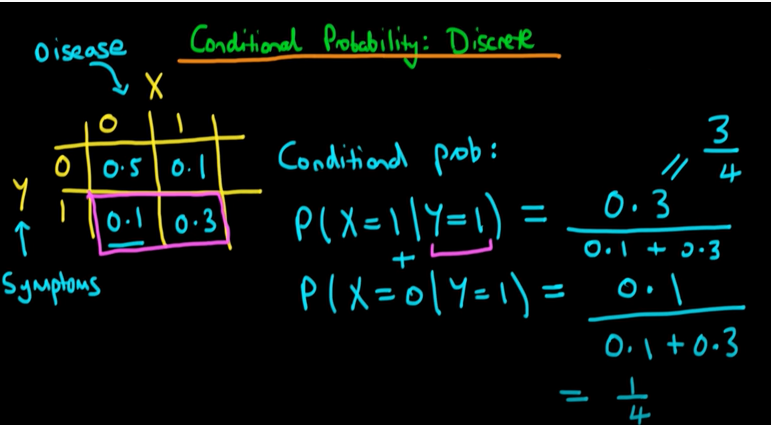 Conditional Probability: Discrete
Disease
X
0 1
0 0.5 0.1
Y 1 0.1 0.3
Symptoms
Conditional prob:
P(X=1|Y=1) = 0.3 / 0.1 + 0.3 = 3/4
+
P(X=0|Y=1) = 0.1 / 0.1 + 0.3
= 1/4